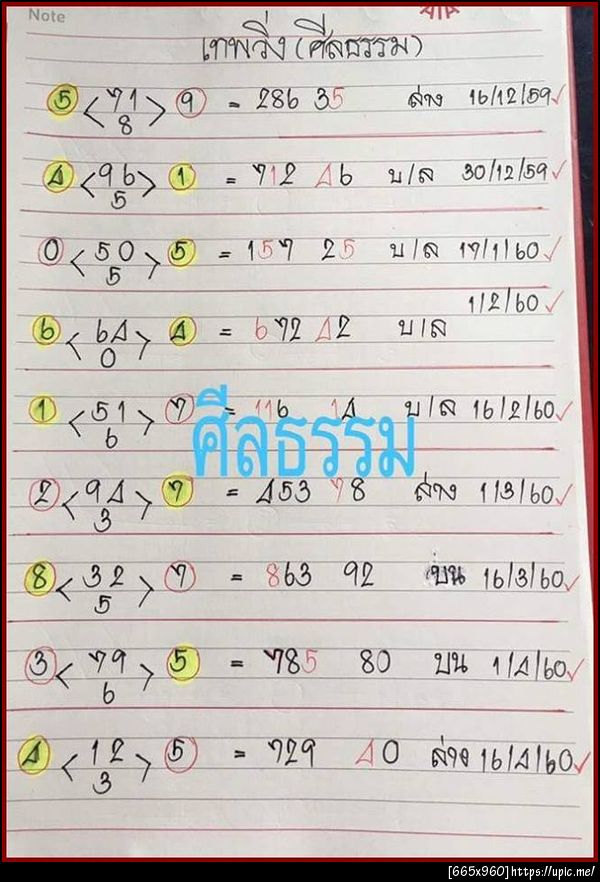 Note
เทพวิ่ง(ศีลธรรม)
5 < 71 > 9 = 286 35 ล่าง 16/12/59 ✓
8
4 < 96 > 1 = 712 46 บ/ล 30/12/59 ✓
5
0 < 50 > 5 = 157 25 บ/ล 17/1/60 ✓
5
1/2/60 ✓
6 < 64 > 4 = 672 42 บ/ล
0
1 < 51 > 7 = 116 14 บ/ล 16/2/60 ✓
6
ศีลธรรม
2 < 94 > 7 = 453 78 ล่าง 1/3/60 ✓
3
8 < 32 > 7 = 863 92 บน 16/3/60 ✓
5
3 < 79 > 5 = 785 80 บน 1/4/60 ✓
6
4 < 12 > 5 = 729 40 ล่าง 16/4/60 ✓
3
[665x960]https://upic.me/